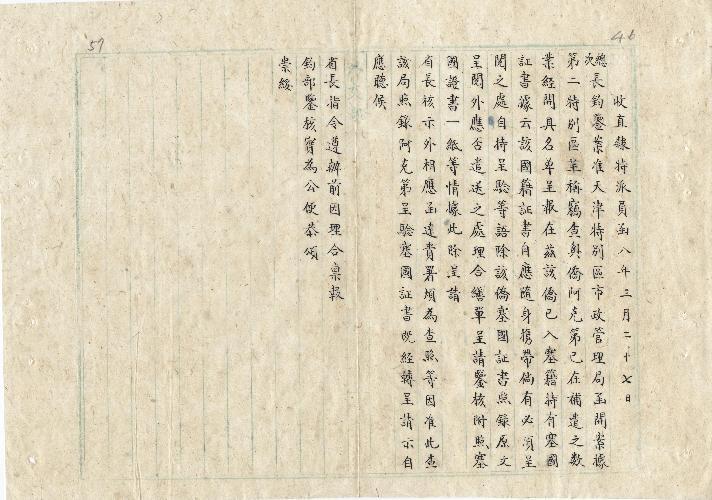 46
收直隸特派員函八年三月二十七日
總次長鈞鑒案准天津特別區市政管理局函開案據
第二特別區呈稱竊查奧僑阿克第已在補遣之數
業經開具名單呈報在茲該僑已入塞籍持有塞國
証書據云該國籍証書自應隨身攜帶倘有必須呈
閱之處自持呈驗等語除該僑塞國証書照錄原文
呈閱外應否遣送之處理合繕單呈請鑒核附照塞
國證書一紙等情據此除呈請
省長核示外相應函達貴署煩為查照等因准此查
該局照錄阿克第呈驗塞國証書既經轉呈請示自
應聽候
57
省長指令遵辦前因理合稟報
鈞部鑒核實為公便恭頌
崇綏